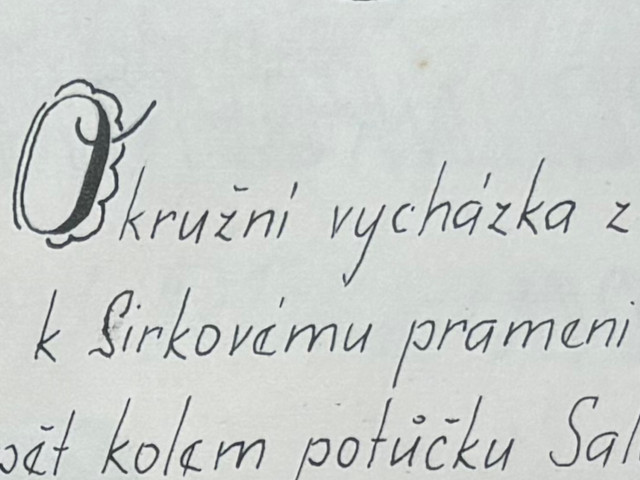 Okružní vycházka z
k Sirkovému prameni
pět kolem potůčku Sal